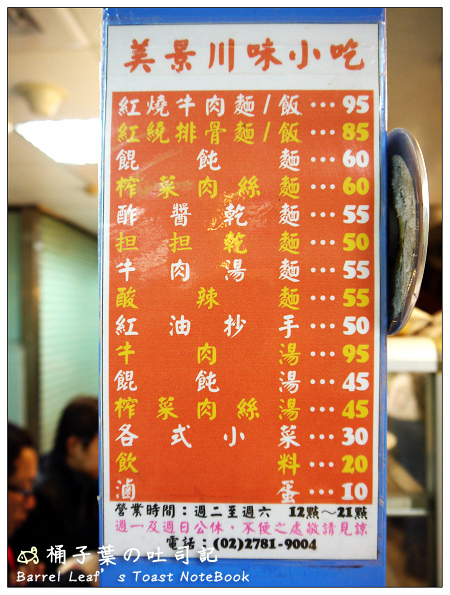 美景川味小吃
紅燒牛肉麵/飯…95
紅燒排骨麵/飯…85
餛飩麵…60
榨菜肉絲麵…60
酢醬乾麵…55
担担乾麵…50
牛肉湯麵…55
酸辣麵…55
紅油抄手…50
牛肉湯…95
餛飩湯…45
榨菜肉絲湯…45
各式小菜…30
飲料…20
滷蛋…10
營業時間：週二至週六 12點～21點
週一及週日公休，不便之處敬請見諒
電話：(02)2781-9004
桶子葉の吐司記
Barrel Leaf's Toast NoteBook